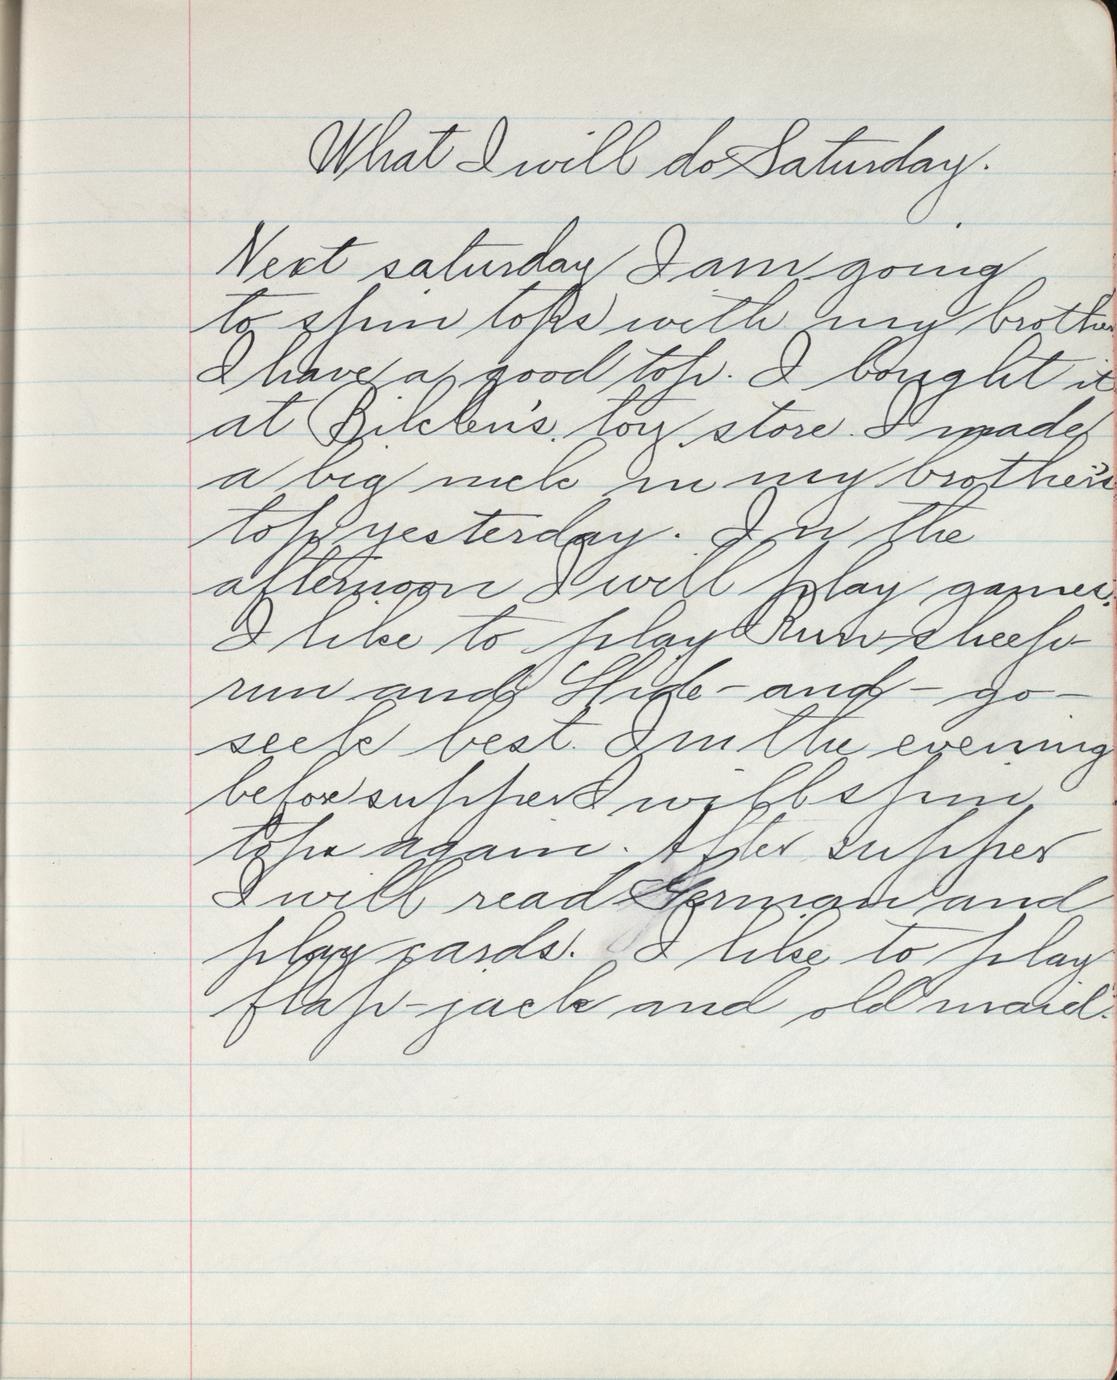 What I will do Saturday.
Next saturday I am going
to spin tops with my brother
I have a good top. I bought it
at toy store. I made
a big nick in my brother's
top yesterday. In the
afternoon I will play games.
I like to play Run-sheep-
run and Hide-and-go-
seek best. In the evening
before supper I will spin
tops again. After supper
I will read German and
play cards. I like to play
flap-jack and old maid.